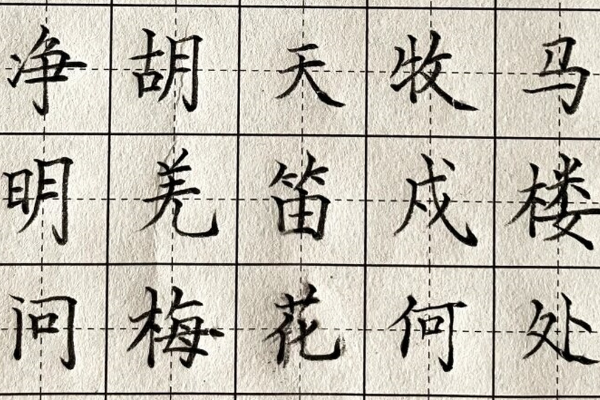 净胡天牧马
明羌笛戍楼
问梅花何处